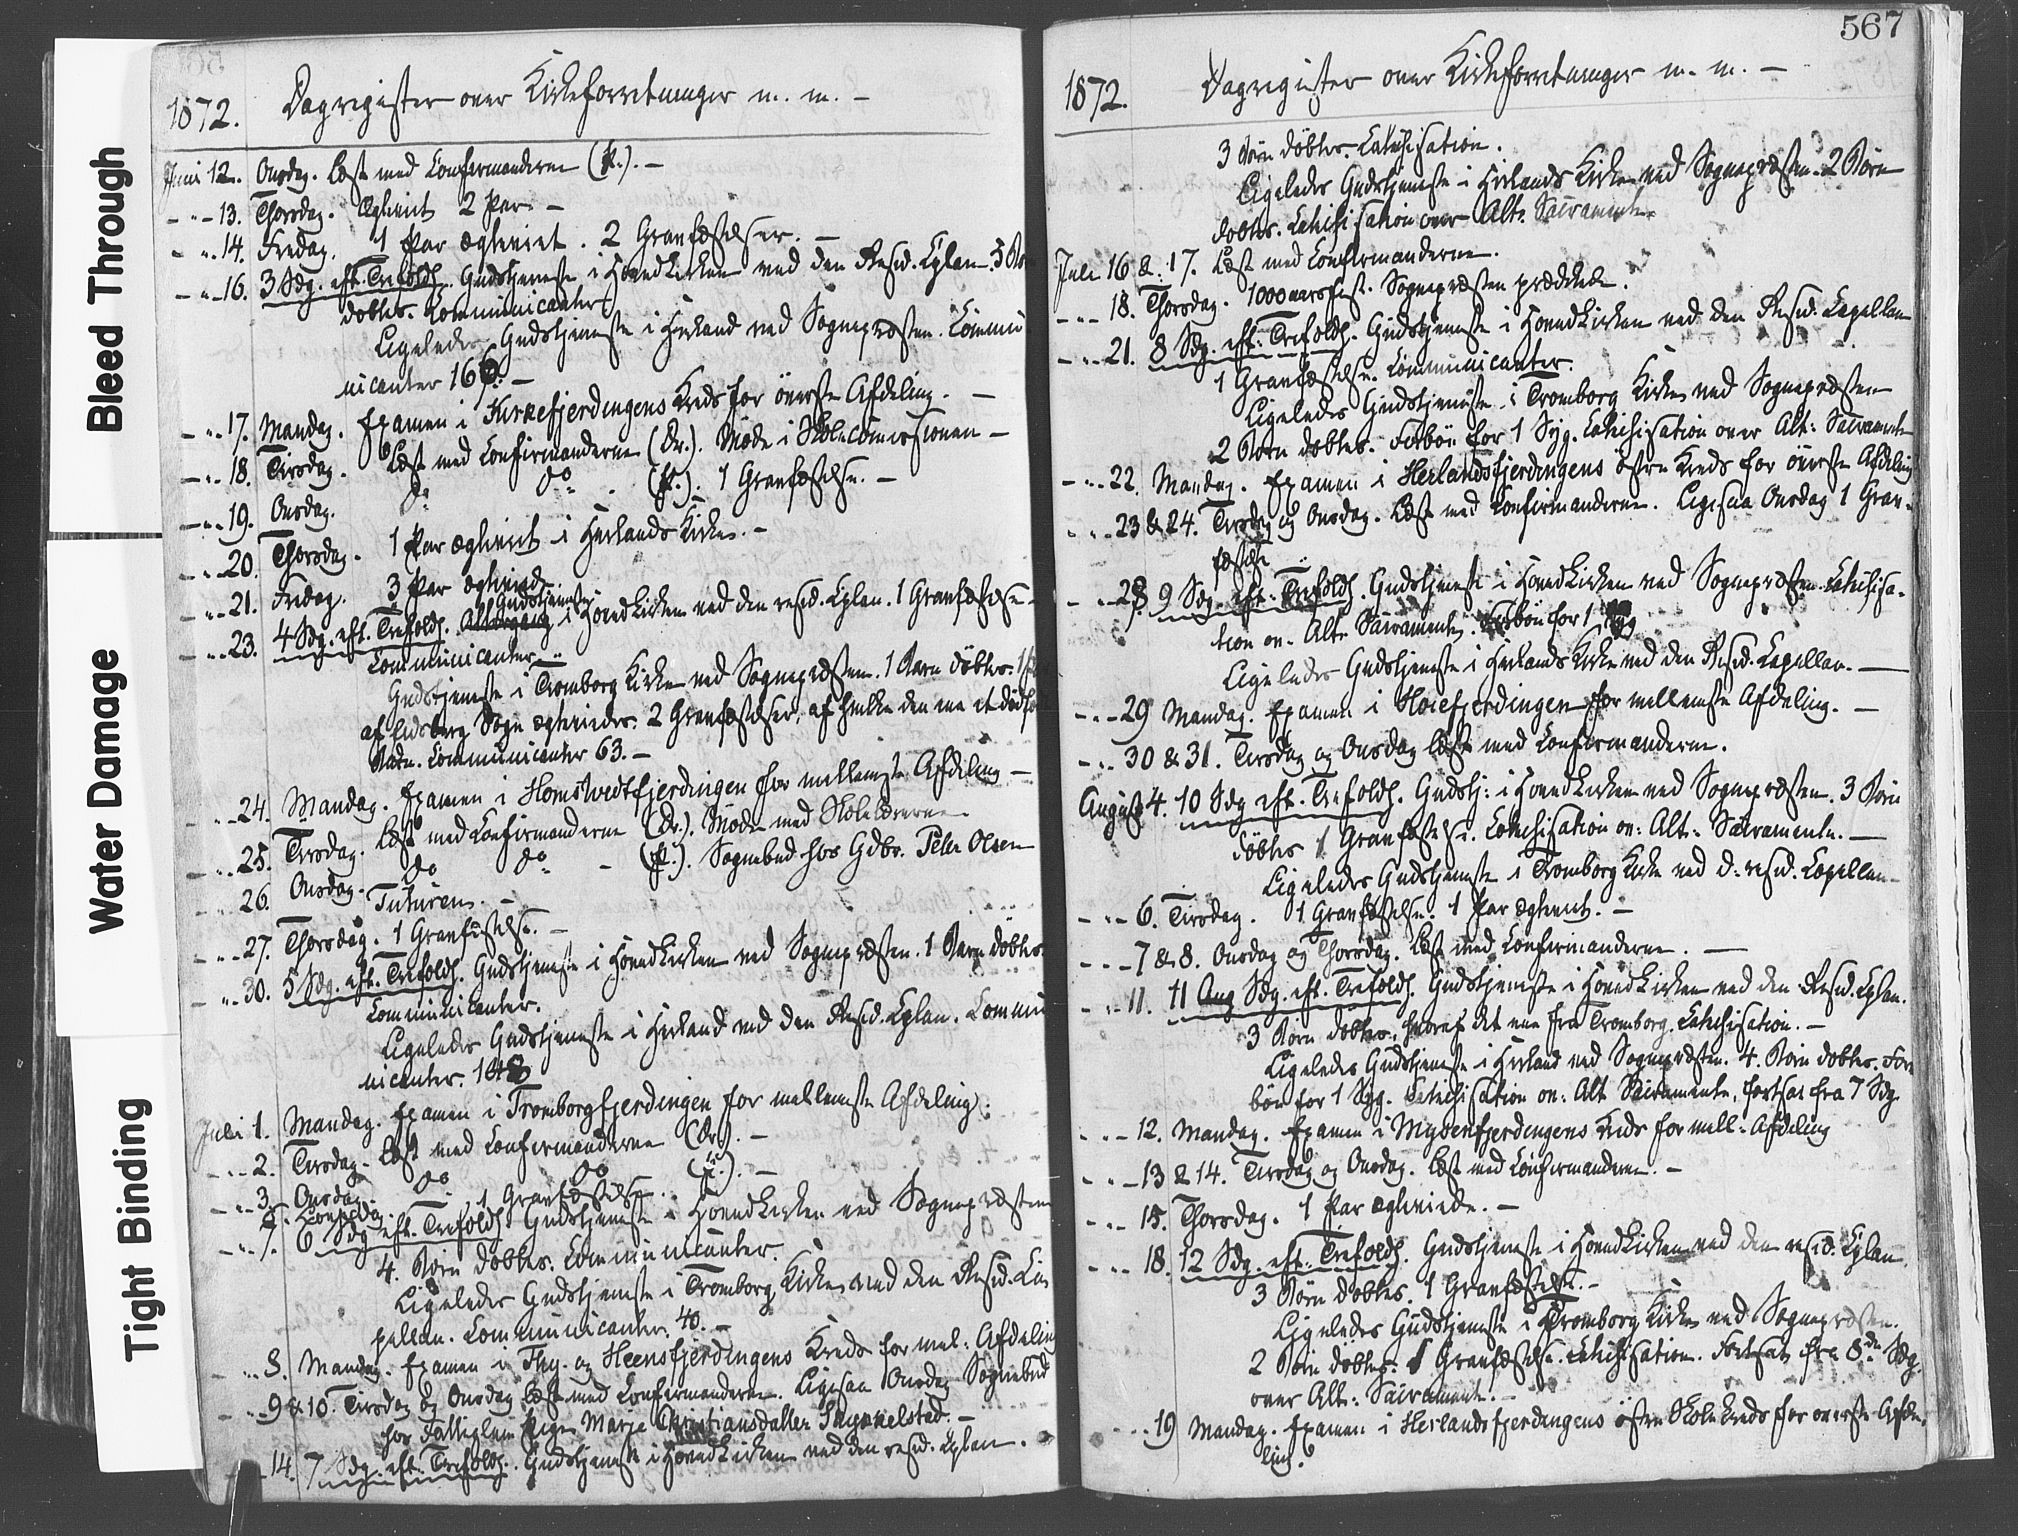 Bleed Through
Water Damage
Tight Binding
1872. Dagregister over Kirkeforretninger m. m. –
Juni 12. Onsdag. Læst med Confirmanderne (P.). –
– " – 13. Thorsdag. Ægteviet 2 Par. –
– " – 14. Fredag. 1 Par ægteviet. 2 Gravfæstelser. –
– " – 16. 3 Sdg. eft. Trefoldh. Gudstjeneste i Hovedkirken ved den Resid. Cplan. 3 Bø
døbtes. Communicanter
Ligeledes Gudstjeneste i Herland ved Sognepræsten. Commu
nicanter 166. –
– " – 17. Mandag. Examen i Kirkefjerdingens Kreds for øverste Afdeling. –
– " – 18. Tirsdag. Læst med Confirmanderne (Dr.). Møde i Skolecommissionen –
– " – 19. Onsdag. do do (P.). 1 Gravfæstelse. –
– " – 20. Thorsdag. 1 Par ægteviet i Herlands Kirke. –
– " – 21. Fredag. 3 Par ægteviede.
– " – 23. 4 Sdg. eft. Trefoldh. Gudstjeneste i Hovedkirken ved den resid. Cplan. 1 Gravfæstelse –
Communicanter "
Gudstjeneste i Tromborg Kirke ved Sognepræsten. 1 Barn døbtes. 1 P
af Eidsberg Sogn ægteviedes. 2 Gravfæstelser, af hvilke den ene et dødf
Barn. Communicanter 63. –
– " – 24. Mandag. Examen i Homstvedtfjerdingen for mellemste Afdeling –
– " – 25. Tirsdag. Læst med Confirmanderne (Dr.). Møde med Skolelærerne
– " – 26. Onsdag. do do – (P.). Sognebud hos Gdbr. Peter Olsen
Tuturen. –
– " – 27. Thorsdag. 1 Gravfæstelse. –
– " – 30. 5 Sdg. eft. Trefoldh. Gudstjeneste i Hovedkirken ved Sognepræsten. 1 Barn døbtes.
Communicanter.
Ligeledes Gudstjeneste i Herland ved den Resid. Cplan. Commu
nicanter. 148
Juli 1. Mandag. Examen i Tromborgfjerdingen for mellemste Afdeling.
– " – 2. Tirsdag. Læst med Confirmanderne (Dr). –
– " – 3. Onsdag. do do (P.). –
1 Gravfæstelse.
– " – 7. 6 Sdg eft. Trefoldh. Gudstjeneste i Hovedkirken ved Sognepræsten
4. Børn døbtes. Communicanter.
Ligeledes Gudstjeneste i Tromborg Kirke ved den Resid. Ca
pellan. Communicanter. 40. –
– " – 8. Mandag. Examen i Thy. og Heensfjerdingens Kreds for mel: Afdeling
– " – 9 & 10. Tirsdag og Onsdag læst med Confirmanderne. Ligesaa Onsdag Sognebud
hos Fattiglem Pige Marie Christiansdatter –
– " – 14. 7 Sdg. eft. Trefoldh. Gudstjeneste i Hovedkirken ved den resid. Cplan.
567
1872. Dagregister over Kirkeforretninger m. m. –
3 Børn døbtes. Catechisation.
Ligeledes Gudstjeneste i Herlands Kirke ved Sognepræsten. 2 Børn
døbtes. Catechisation over Alt: Sacramente.
Juli 16 & 17. Læst med Confirmanderne.
– " – 18. Thorsdag. 1000aarsfest. Sognepræsten prædikede.
– " – 21. 8 Sdg. eft. Trefoldh. Gudstjeneste i Hovedkirken ved den Resid. Capellan
1 Gravfæstelse. Communicanter.
Ligeledes Gudstjeneste i Tromborg Kirke ved Sognepræsten
2 Børn døbtes. Forbøn for 1 Syg. Catechisation over Alt: Sacramente
– " – 22. Mandag. Examen i Herlandsfjerdingens østre Kreds for øverste Afdeling
– " – 23 & 24. Tirsdag og Onsdag. Læst med Confirmanderne. Ligesaa Onsdag 1 Grav-
fæstelse
– " – 28. 9 Sdg. eft. Trefoldh. Gudstjeneste i Hovedkirken ved Sognepræsten. Catechisa-
tion ov. Alt: Sacramente. Forbøn for 1 Syg
Ligeledes Gudstjeneste i Herlands Kirke ved den Resid. Capellan. –
– " – 29 Mandag. Examen i Høiefjerdingen for mellemste Afdeling. –
– " – 30 & 31. Tirsdag og Onsdag læst med Confirmanderne.
August 4. 10 Sdg eft. Trefoldh. Gudstj: i Hovedkirken ved Sognepræsten. 3 Børn
døbtes 1 Gravfæstelse. Catechisation ov: Alt: Sacramente. –
Ligeledes Gudstjeneste i Tromborg Kirke ved d: resid. Capellan –
– " – 6. Tirsdag. 1 Gravfæstelse. 1 Par ægteviet. –
– " – 7 & 8. Onsdag og Thorsdag. Læst med Confirmanderne. –
– " – 11. 11 Aug Sdg. eft. Trefoldh. Gudstjeneste i Hovedkirken ved den Resid. Cplan.
3 Børn døbtes, hvoraf det ene fra Tromborg. Catechisation. –
Ligeledes Gudstjeneste i Herland ved Sognepræsten. 4. Børn døbtes. For
bøn for 1 Syg. Catechisation ov: Alt Sacramente, fortsat fra 7 Sdg.
– " – 12. Mandag. Examen i Mysenfjerdingens Kreds for mell: Afdeling
– " – 13 & 14. Tirsdag og Onsdag. Læst med Confirmanderne. –
– " – 15. Thorsdag. 1 Par ægteviede. –
– " – 18. 12 Sdg. eft. Trefoldh. Gudstjeneste i Hovedkirken ved den resid. Cplan
3 Børn døbtes. 1 Gravfæstelse. –
Ligeledes Gudstjeneste i Tromborg Kirke ved Sognepræsten.
2 Børn døbtes. 1 Gravfæstelse. Catechisation. Fortsat fra 8de Sdg.
over Alt: Sacrament. –
– " – 19 Mandag. Examen i Herlandsfjerdingens østre Skole Kreds for øverste Afde-
ling.